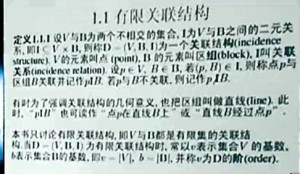 1.1 有限关联结构
定义1.1.1 设V与B为两个不相交的集合, I为V与B之间的二元关
系, 即I ⊆ V × B, 则称D = (V, B, I)为一个关联结构(incidence
structure). V的元素叫点(point), B的元素叫区组(block), I叫关联
关系(incidence relation). 设p ∈ V, B ∈ B, 若(p, B) ∈ I, 则称点p与
区组B关联并记作pIB. 若p与B不关联, 则记作pIB.
有时为了强调关联结构的几何意义, 也把区组叫做直线(line). 此
时, “pIB” 也可读作 “点p在直线B上” 或 “直线B经过点p”.
本书只讨论有限关联结构, 即V与B都是有限集的关联结
构. 当D = (V, B, I)为有限关联结构时, 常以v表示集合V 的基数,
b表示集合B的基数, 即v = |V|, b = |B|, 并称v为D的阶(order).